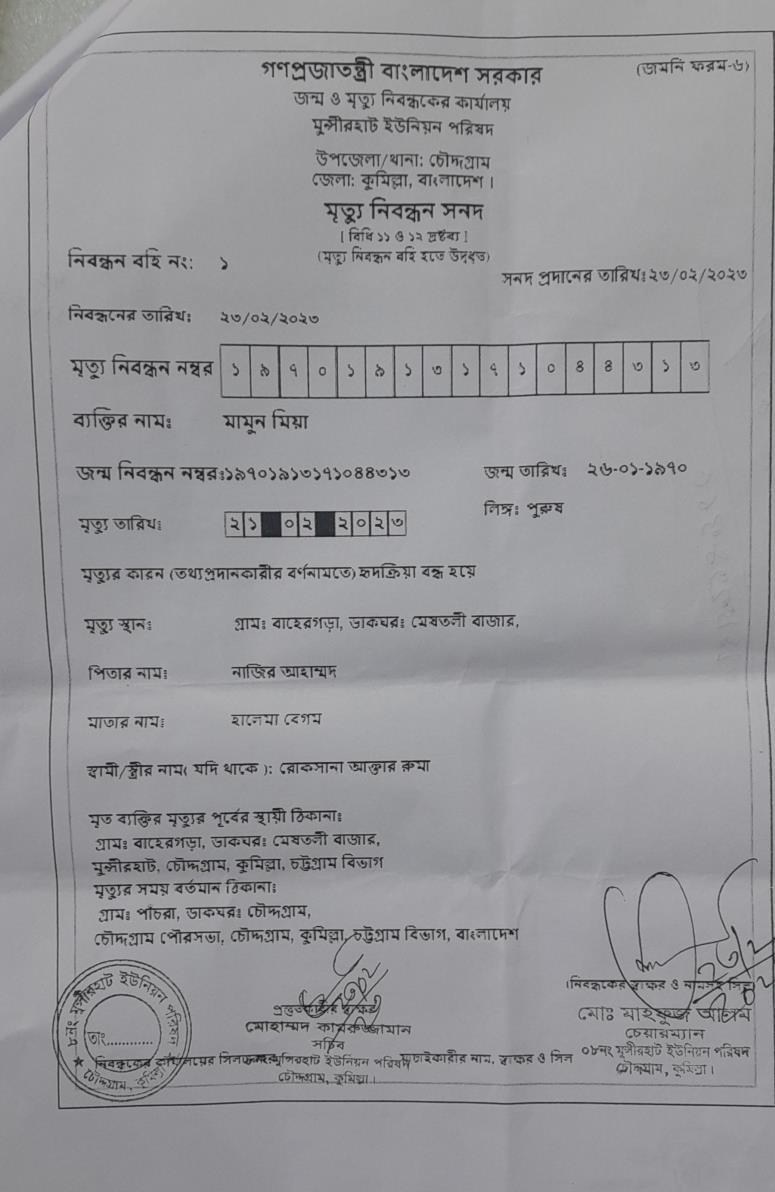 গণপ্রজাতন্ত্রী বাংলাদেশ সরকার
(জমনি ফরম-৬)
জন্ম ও মৃত্যু নিবন্ধকের কার্যালয়
মুন্সীরহাট ইউনিয়ন পরিষদ
উপজেলা/থানা: চৌদ্দগ্রাম
জেলা: কুমিল্লা, বাংলাদেশ।
মৃত্যু নিবন্ধন সনদ
[ বিধি ১১ ও ১২ দ্রষ্টব্য ]
(মৃত্যু নিবন্ধন বহি হতে উদ্ধৃত)
নিবন্ধন বহি নং: ১
সনদ প্রদানের তারিখঃ ২৩/০২/২০২৩
নিবন্ধনের তারিখঃ ২৩/০২/২০২৩
মৃত্যু নিবন্ধন নম্বর ১৯৭০১৯১৩১৭১০৪৪৩১৩
ব্যক্তির নামঃ মামুন মিয়া
জন্ম নিবন্ধন নম্বরঃ১৯৭০১৯১৩১৭১০৪৪৩১৩ জন্ম তারিখঃ ২৬-০১-১৯৭০
মৃত্যু তারিখঃ ২১ ০২ ২০২৩ লিঙ্গঃ পুরুষ
মৃত্যুর কারন (তথ্যপ্রদানকারীর বর্ণনামতে) হৃদক্রিয়া বন্ধ হয়ে
মৃত্যু স্থানঃ গ্রামঃ বাহেরগড়া, ডাকঘরঃ মেষতলী বাজার,
পিতার নামঃ নাজির আহাম্মদ
মাতার নামঃ হালেমা বেগম
স্বামী/স্ত্রীর নাম( যদি থাকে ): রোকসানা আক্তার রুমা
মৃত ব্যক্তির মৃত্যুর পূর্বের স্থায়ী ঠিকানাঃ
গ্রামঃ বাহেরগড়া, ডাকঘরঃ মেষতলী বাজার,
মুন্সীরহাট, চৌদ্দগ্রাম, কুমিল্লা, চট্টগ্রাম বিভাগ
মৃত্যুর সময় বর্তমান ঠিকানাঃ
গ্রামঃ পাঁচরা, ডাকঘরঃ চৌদ্দগ্রাম,
চৌদ্দগ্রাম পৌরসভা, চৌদ্দগ্রাম, কুমিল্লা, চট্টগ্রাম বিভাগ, বাংলাদেশ
৮নং মুন্সীরহাট ইউনিয়ন পরিষদ
তাং............
চৌদ্দগ্রাম, কুমিল্লা
মোহাম্মদ
সচিব
মুন্সিরহাট ইউনিয়ন পরিষদ
চৌদ্দগ্রাম, কুমিল্লা।
নিবন্ধকের স্বাক্ষর ও
মোঃ মাহফুজ আলম
চেয়ারম্যান
০৮নং মুন্সীরহাট ইউনিয়ন পরিষদ
চৌদ্দগ্রাম, কুমিল্লা।